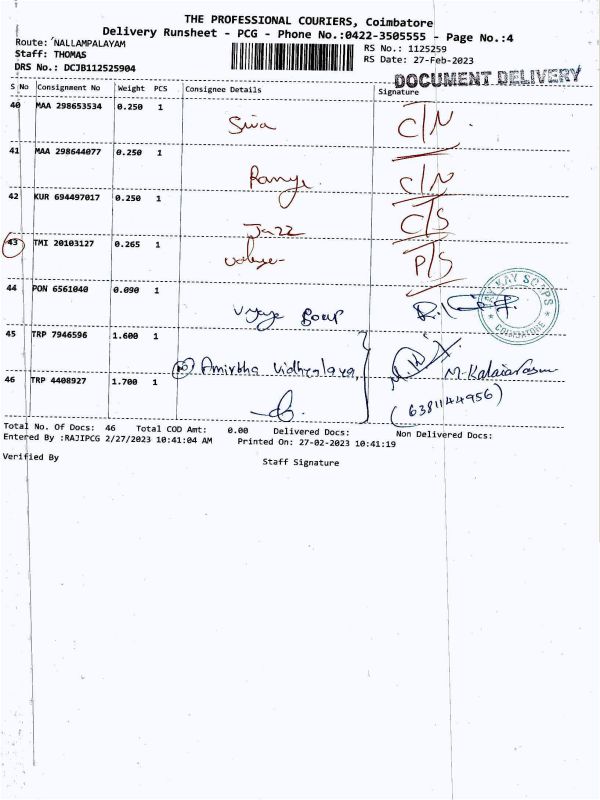 THE PROFESSIONAL COURIERS, Coimbatore
Delivery Runsheet - PCG - Phone No.:0422-3505555 - Page No.:4
Route: NALLAMPALAYAM
RS No.: 1125259
Staff: THOMAS
RS Date: 27-Feb-2023
DRS No.: DCJB112525904
DOCUMENT DELIVERY
S No Consignment No Weight PCS Consignee Details Signature
40 MAA 298653534 0.250 1 Siva C/N
41 MAA 298644077 0.250 1 Ramya C/N
42 KUR 694497017 0.250 1 Jazz C/S
43 TMI 20103127 0.265 1 P/S
44 PON 6561040 0.090 1 Vijaya Soap
KAY SOAPS
COIMBATORE
45 TRP 7946596 1.600 1 Amirtha Vidhyalaya,
M. Kalaiarasu
46 TRP 4408927 1.700 1 (6381144956)
Total No. Of Docs: 46 Total COD Amt: 0.00 Delivered Docs: Non Delivered Docs:
Entered By :RAJIPCG 2/27/2023 10:41:04 AM Printed On: 27-02-2023 10:41:19
Verified By Staff Signature